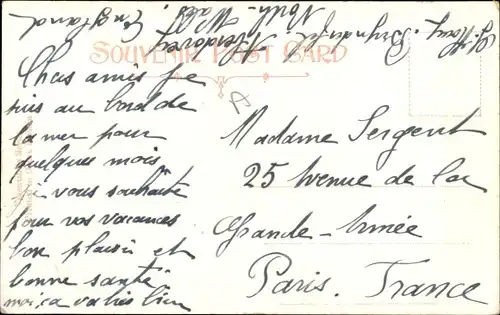 SOUVENIR POST CARD
North Wales, England
Chers amis je
suis au bord de
la mer pour
quelques mois
je vous souhaite
pour vos vacances
bon plaisir et
bonne santé
moi, ça va très bien
Madame Sergent
25 Avenue de la
Grande-Armée
Paris. France